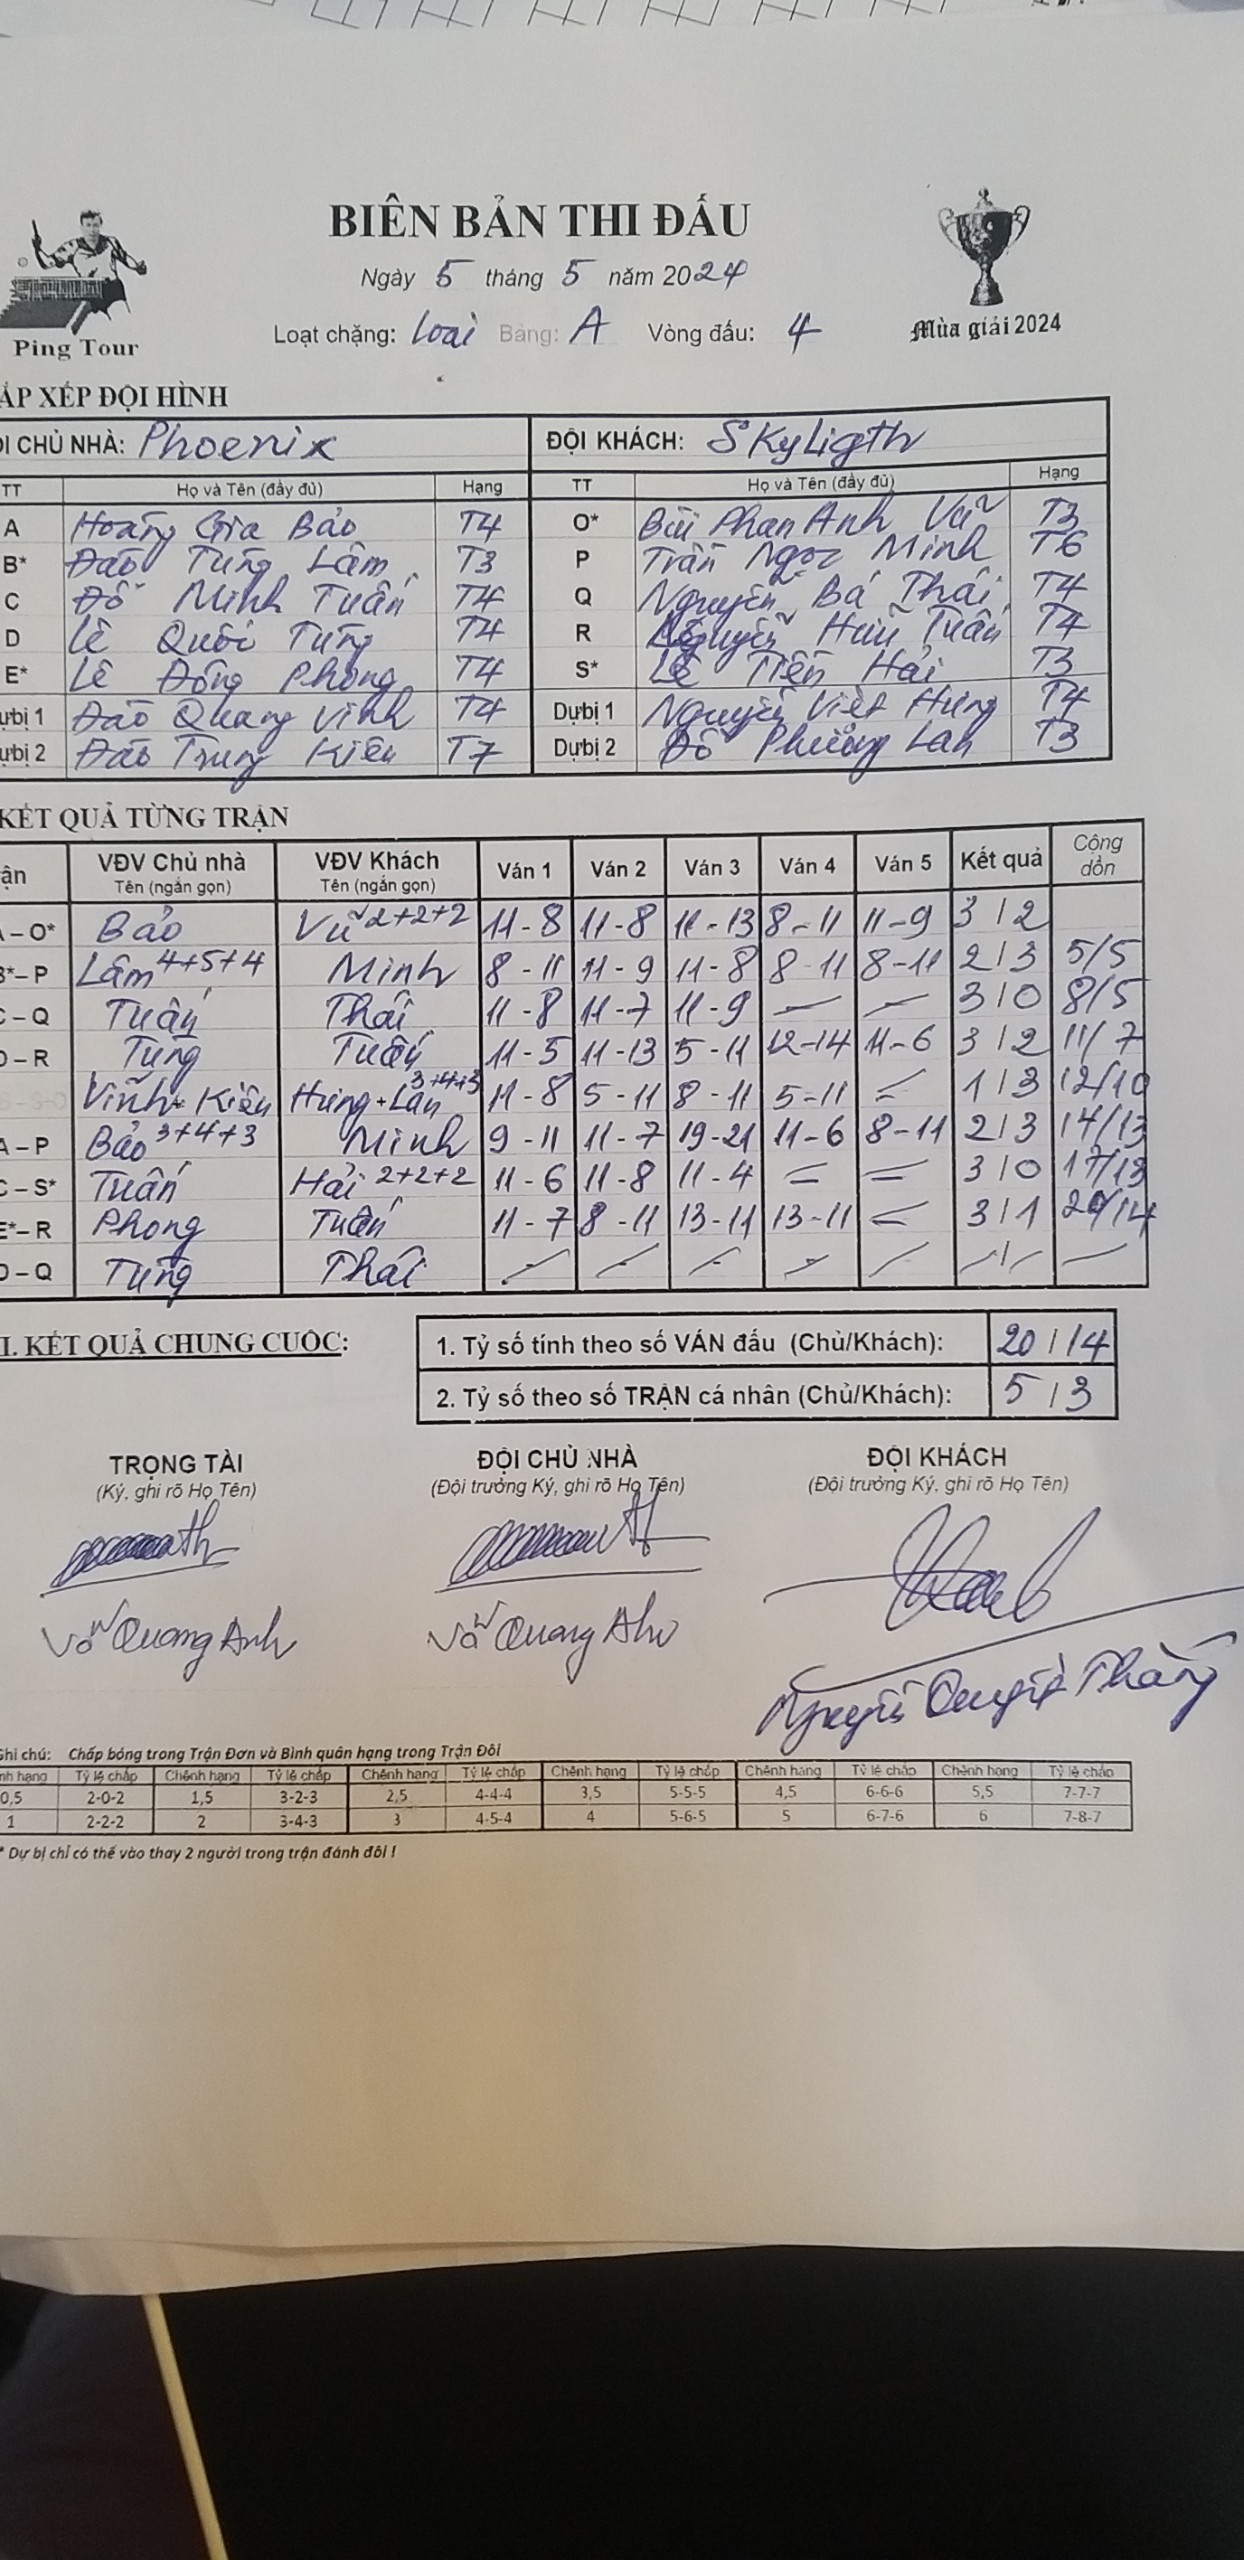 BIÊN BẢN THI ĐẤU
Ngày 5 tháng 5 năm 2024
Loạt chặng: Loại Bảng: A Vòng đấu: 4
Ping Tour
Mùa giải 2024
ẮP XẾP ĐỘI HÌNH
ỘI CHỦ NHÀ: Phoenix ĐỘI KHÁCH: SKyLigth
TT Họ và Tên (đầy đủ) Hạng TT Họ và Tên (đầy đủ) Hạng
A Hoàng Gia Bảo T4 O* Bùi Phan Anh Vũ T3
B* Đào Tùng Lâm T3 P Trần Ngọc Minh T6
C Đỗ Minh Tuấn T4 Q Nguyễn Bá Thái T4
D Lê Quốc Tùng T4 R Nguyễn Hữu Tuấn T4
E* Lê Đông Phong T4 S* Lê Tiến Hải T3
ựbị 1 Đào Quang Vinh T4 Dựbị 1 Nguyễn Việt Hưng T4
ựbị 2 Đào Trung Kiên T7 Dựbị 2 Đỗ Phương Lan T3
KẾT QUẢ TỪNG TRẬN
ận VĐV Chủ nhà VĐV Khách Ván 1 Ván 2 Ván 3 Ván 4 Ván 5 Kết quả Cộng dồn
Tên (ngắn gọn) Tên (ngắn gọn)
A – O* Bảo Vũ 2+2+2 11-8 11-8 11-13 8-11 11-9 3/2
B* – P Lâm 4+5+4 Minh 8-11 11-9 11-8 8-11 8-11 2/3 5/5
C – Q Tuấn Thái 11-8 11-7 11-9 – – 3/0 8/5
D – R Tùng Tuấn 11-5 11-13 5-11 12-14 11-6 3/2 11/7
Vinh + Kiên Hưng + Lan 3+4+3 11-8 5-11 8-11 5-11 = 1/3 12/10
A – P Bảo 3+4+3 Minh 9-11 11-7 19-21 11-6 8-11 2/3 14/13
C – S* Tuấn Hải 2+2+2 11-6 11-8 11-4 = = 3/0 17/13
E* – R Phong Tuấn 11-7 8-11 13-11 13-11 = 3/1 20/14
D – Q Tùng Thái – – – – – –/– –
I. KẾT QUẢ CHUNG CUỘC:
1. Tỷ số tính theo số VÁN đấu (Chủ/Khách): 20/14
2. Tỷ số theo số TRẬN cá nhân (Chủ/Khách): 5/3
TRỌNG TÀI ĐỘI CHỦ NHÀ ĐỘI KHÁCH
(Ký, ghi rõ Họ Tên) (Đội trưởng Ký, ghi rõ Họ Tên) (Đội trưởng Ký, ghi rõ Họ Tên)
Võ Quang Anh Võ Quang Anh Nguyễn Quyết Thắng
Ghi chú: Chấp bóng trong Trận Đơn và Bình quân hạng trong Trận Đôi
nh hạng Tỷ lệ chấp Chênh hạng Tỷ lệ chấp Chênh hạng Tỷ lệ chấp Chênh hạng Tỷ lệ chấp Chênh hạng Tỷ lệ chấp Chênh hạng Tỷ lệ chấp
0,5 2-0-2 1,5 3-2-3 2,5 4-4-4 3,5 5-5-5 4,5 6-6-6 5,5 7-7-7
1 2-2-2 2 3-4-3 3 4-5-4 4 5-6-5 5 6-7-6 6 7-8-7
* Dự bị chỉ có thể vào thay 2 người trong trận đánh đôi !